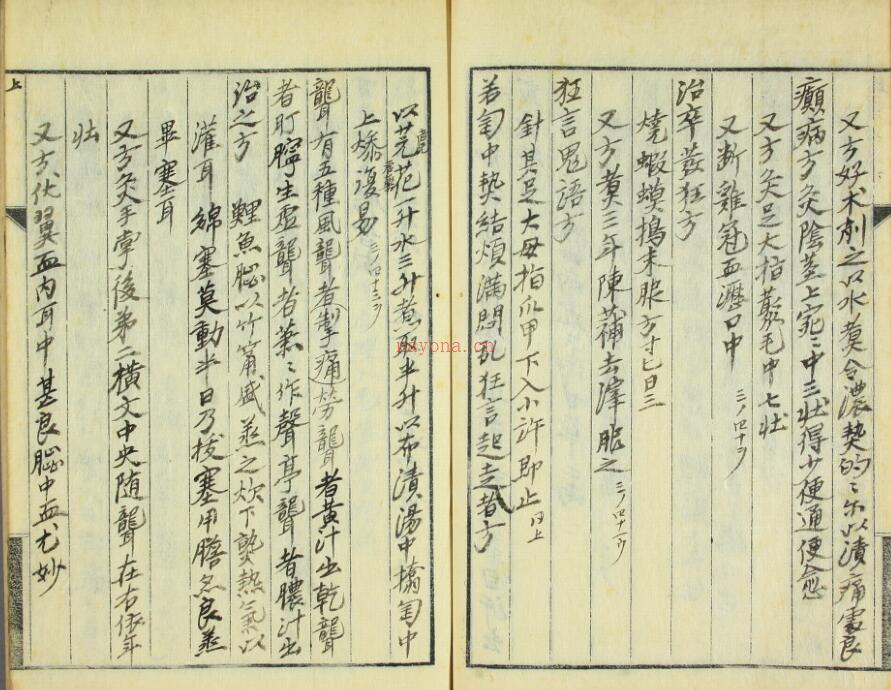 又方好朮剉之以水煮令濃熱的〻尔以漬痛處良
癲病方灸陰莖上宛〻中三壯得小便通便愈
又方灸足大指藂毛中七壯
又断雞冠血瀝口中
三ノ四十ヲ
治卒發狂方
燒蝦蟆搗末服方寸匕日三
又方煮三年陳蒲去滓服之
三ノ四十一ヲ
狂言鬼語方
針其足大母指爪甲下入小許即止
同上
若匈中熱結煩滿悶乱狂言起走者方
以芫花一升水三升煑取半升以布漬湯中擒匈中
上燥復易
三ノ四十三ヲ
聾有五種風聾者掣痛勞聾者黃汁出乾聾
者耵聹生虛聾者蕭〻作聲亭聾者膿汁出
治之方 鯉魚腦以竹筩盛蒸之炊下熟熱氣以
灌耳綿塞莫動半日乃拔塞用膽尒良蒸
畢塞耳
又方灸手掌後第二橫文中央随聾在右依年
壯
又方伏翼血內耳中甚良腦中血尤妙
上
nayona.cn